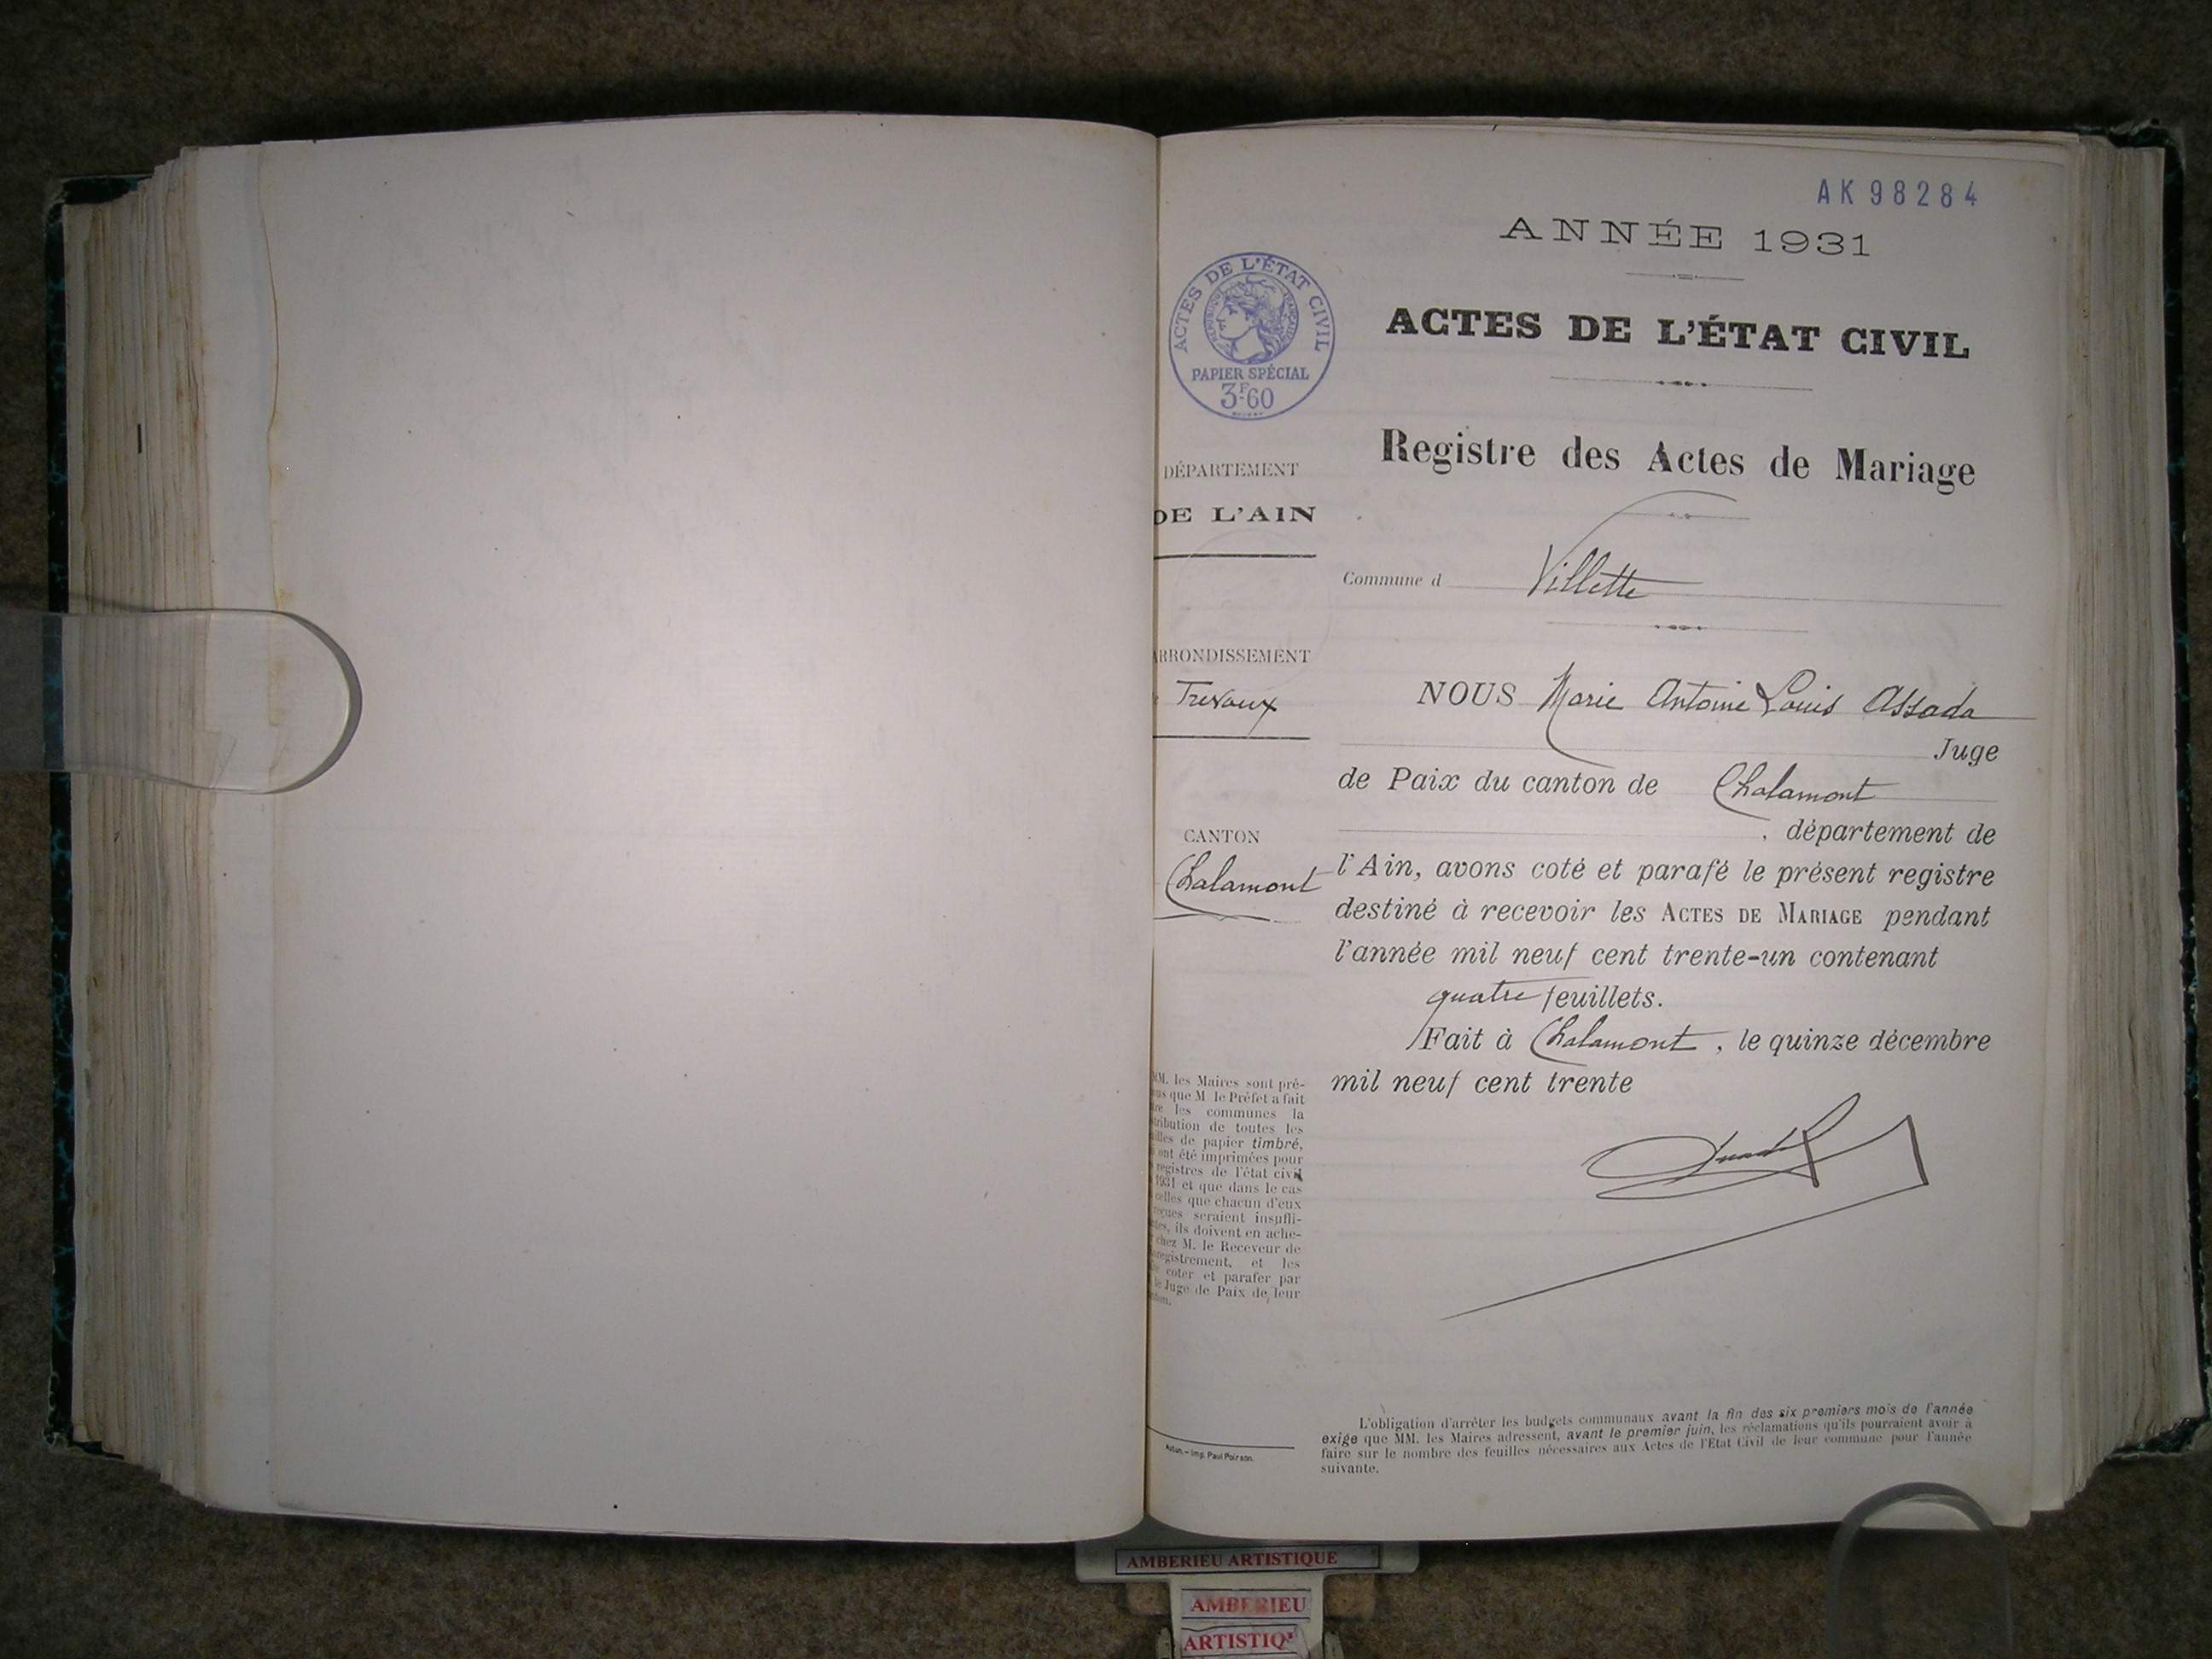 AK 98284
ANNÉE 1931
ACTES DE L'ÉTAT CIVIL
RÉPUBLIQUE FRANÇAISE
PAPIER SPÉCIAL
3F60
ACTES DE L'ÉTAT CIVIL
Registre des Actes de Mariage
DÉPARTEMENT
DE L'AIN
Commune d Villette
ARRONDISSEMENT
Trevoux
CANTON
Chalamont
NOUS Marie Antoine Louis Assada
Juge
de Paix du canton de Chalamont
, département de
l'Ain, avons coté et parafé le présent registre
destiné à recevoir les ACTES DE MARIAGE pendant
l'année mil neuf cent trente-un contenant
quatre feuillets.
Fait à Chalamont, le quinze décembre
mil neuf cent trente
MM. les Maires sont pré-
us que M le Préfet a fait
re les communes la
tribution de toutes les
illes de papier timbré,
ont été imprimées pour
registres de l'état civil
1931 et que dans le cas
celles que chacun d'eux
reçues seraient insuffi-
tes, ils doivent en ache-
chez M. le Receveur de
nregistrement, et les
coter et parafer par
le Juge de Paix de leur
nton.
Imp. Paul Poirson.
L'obligation d'arrêter les budgets communaux avant la fin des six premiers mois de l'année
exige que MM. les Maires adressent, avant le premier juin, les réclamations qu'ils pourraient avoir à
faire sur le nombre des feuilles nécessaires aux Actes de l'Etat Civil de leur commune pour l'année
suivante.
AMBERIEU ARTISTIQUE
AMBERIEU
ARTISTIQ